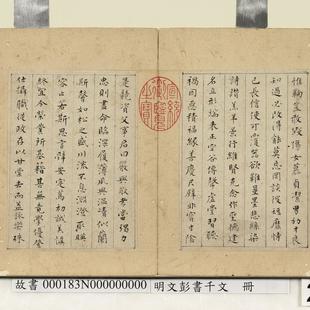 惟鞠養豈敢毀傷女慕貞潔男効才良
知過必改得能莫忘罔談彼短靡恃
己長信使可覆器欲難量墨悲絲染
詩讚羔羊景行維賢克念作聖德建
名立形端表正空谷傳聲虛堂習聽
禍因惡積福緣善慶尺璧非寶寸陰
宣統御覽之寶
是競資父事君曰嚴與敬孝當竭力
忠則盡命臨深履薄夙興溫凊似蘭
斯馨如松之盛川流不息淵澄取映
容止若思言辭安定篤初誠美慎
終宜令榮業所基籍甚無竟學優登
仕攝職從政存以甘棠去而益詠樂殊
故書 000183N000000000 明文彭書千文 冊